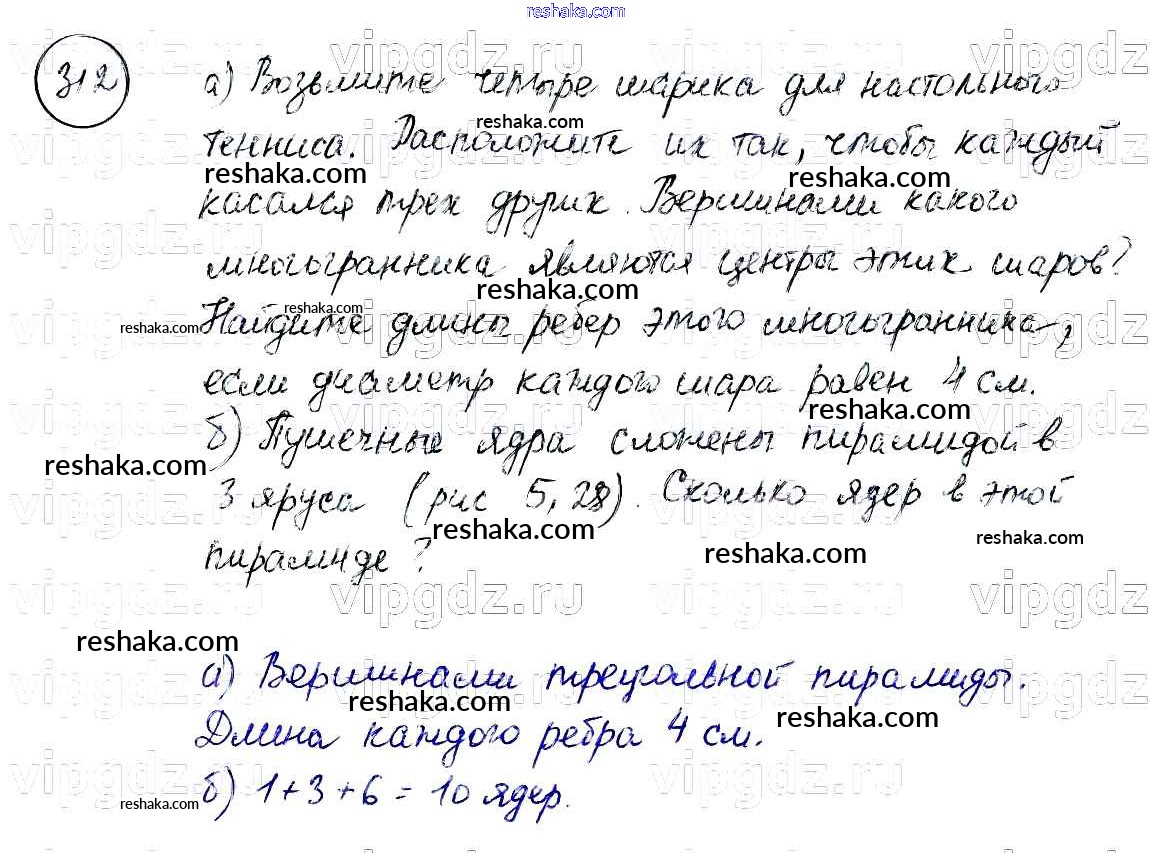 reshaka.com
312
а) Возьмите четыре шарика для настольного
reshaka.com
тенниса. Расположите их так, чтобы каждый
reshaka.com reshaka.com
касался трех других. Вершинами какого
многогранника являются центры этих шаров?
reshaka.com
reshaka.com reshaka.com
Найдите длины ребер этого многогранника,
если диаметр каждого шара равен 4 см.
reshaka.com
б) Пушечные ядра сложены пирамидой в
reshaka.com
3 яруса (рис 5,28). Сколько ядер в этой
reshaka.com reshaka.com
пирамиде?
reshaka.com
vipgdz.ru vipgdz.ru vipgdz.ru
reshaka.com
а) Вершинами треугольной пирамиды.
reshaka.com reshaka.com
Длина каждого ребра 4 см.
б) 1+3+6=10 ядер.
reshaka.com